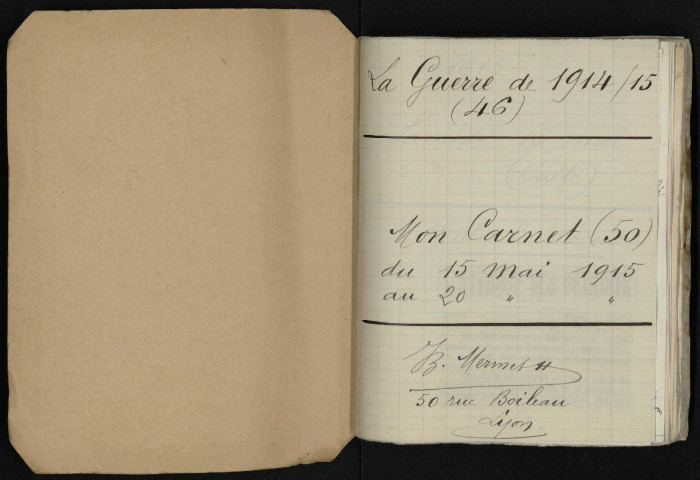 La Guerre de 1914/15
(46)
Mon Carnet (50)
du 15 mai 1915
au 20 " "
B. Mermet
50 rue Boileau
Lyon